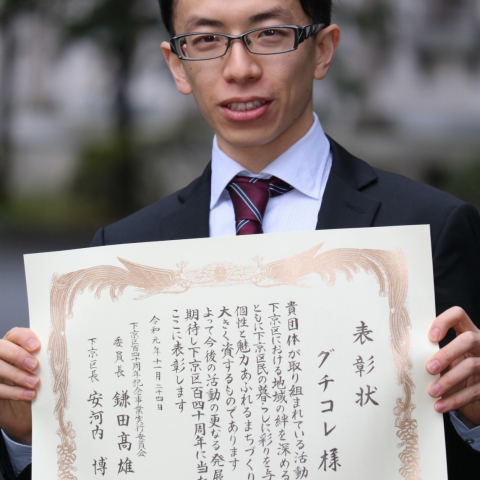 表彰状
グチコレ 様
貴団体が取り組まれている活動
下京区における地域の絆を深める
ともに下京区民の暮らしに彩りを与
個性と魅力あふれるまちづくり
大きく資するものであります
よって今後の活動の更なる発展
期待し下京区百四十周年に当た
ここに表彰します
令和元年十一月二十四日
下京区百四十周年記念事業実行委員会
委員長 鎌田髙雄
下京区長 安河内 博